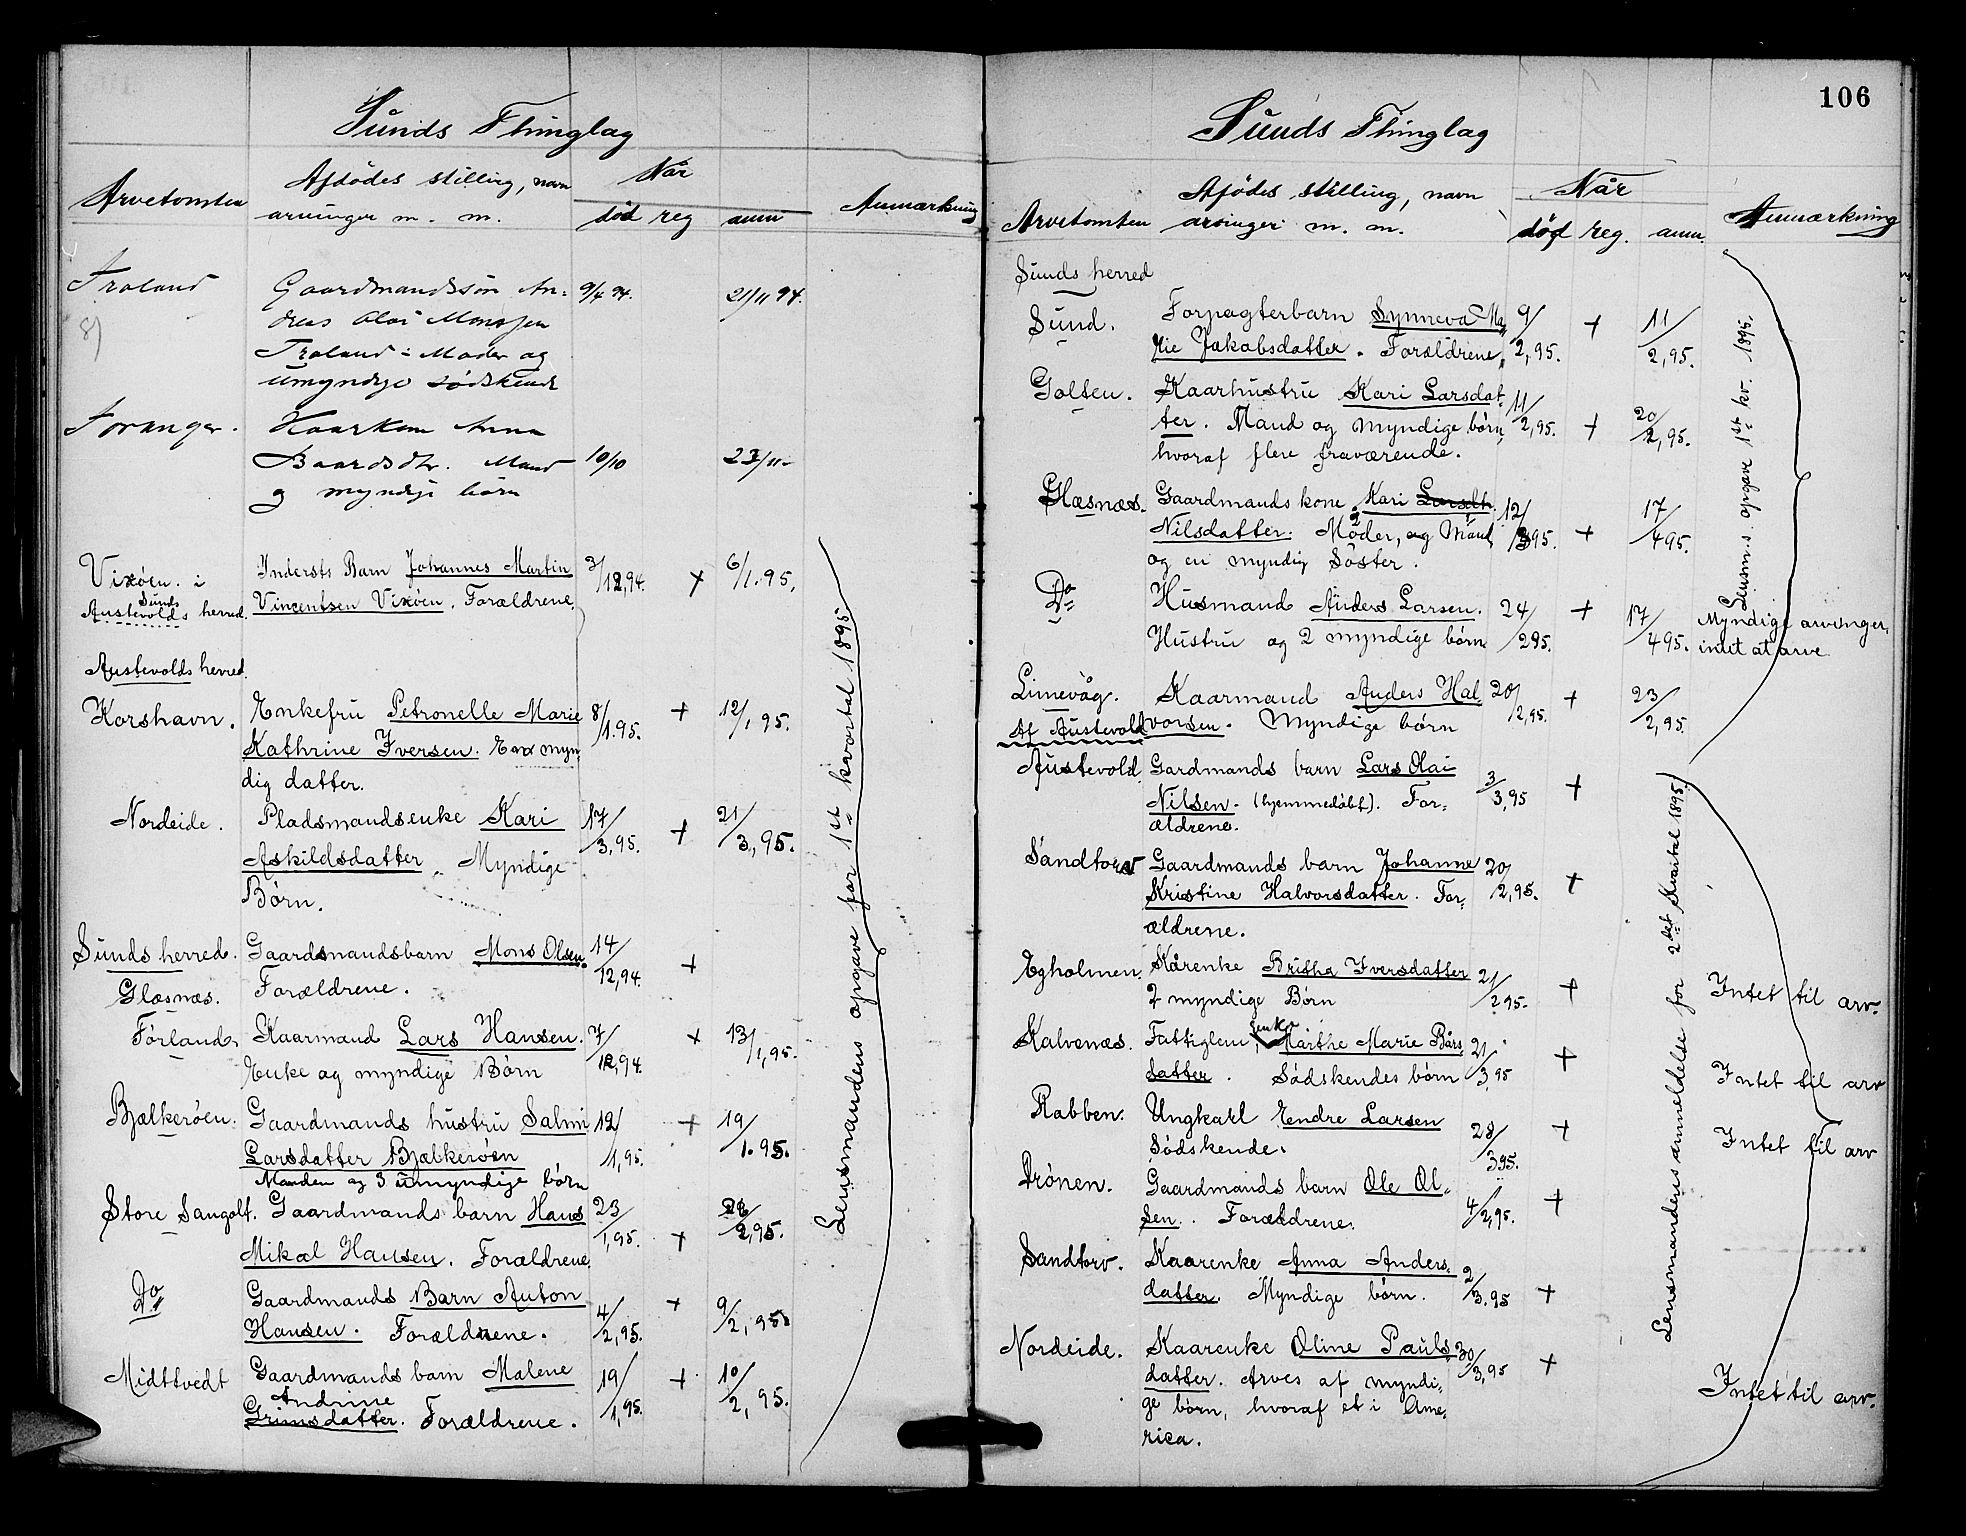 Sunds Thinglag
Arvetomten
Afdödes stilling, navn
arvinger m. m.
Når
död reg anm
Anmærkning
Troland
Gaardmandssön An-
dreas Olai Monssen
Troland : Moder og
umyndige södskende
9/4 94.
21/11 94.
8)
Toranger.
Kaarkone Anna
Baardsdtr. Mand
og myndige börn
10/10
23/11
Vixöen. i
Sunds
Austevolds herred.
Indersts Barn Johannes Martin
Vincentsen Vixöen. Forældrene.
3/12,94. + 6/1.95.
Austevolds herred.
Korshavn.
Enkefru Petronelle Marie
Kathrine Iversen. En myn-
dig datter.
8/1.95. + 12/1 95.
Nordeide.
Pladsmandsenke Kari
Askildsdatter. Myndige
Börn.
17/3,95. + 21/3,95.
Sunds herred.
Glæsnæs.
Gaardmandsbarn Mons Olsen.
Forældrene.
14/12,94. +
Förland,
Kaarmand Lars Hansen.
Enke og myndige Börn
7/12,94. + 13/1,95.
Bjælkeröen.
Gaardmands hustru Salmi
Larsdatter Bjælkeröen
Manden og 3 umyndige börn
12/1,95. + 19/1.95.
Store Sangolt.
Gaardmands barn Hans
Mikal Hansen. Forældrene.
23/1,95. + 2,95.
Do
Gaardmands Barn Anton
Hansen. Forældrene.
4/2,95. + 9/2,95.
Midttvedt
Gaardmands barn Malene
Andrine
Grimsdatter. Forældrene.
19/1,95. + 10/2,95.
Lensmandens opgave for 1ste kvartal 1895
106
Sunds Thinglag
Arvetomten
Afdödes stilling, navn
arvinger m. m.
Når
död reg. anm.
Anmærkning
Sunds herred
Sund.
Forpagterbarn Synneva Ma-
rie Jakobsdatter. Forældrene.
9/2,95. + 11/2,95.
Golten.
Kaarhustru Kari Larsdat-
ter. Mand og myndige börn,
hvoraf flere fraværende.
11/2,95. + 20/2,95.
Glæsnæs.
Gaardmands kone Kari Larsdtr.
Nilsdatter. Moder, og Mand,
og en myndig Söster.
12/395. + 17/495.
Do
Husmand Anders Larsen.
Hustru og 2 myndige börn
24/295. + 17/495.
Myndige arvinger,
intet at arve
Limevåg.
Kaarmand Anders Hal-
vorsen. Myndige börn
20/2,95. + 23/2,95.
Lensm.s. opgave 1ste kv. 1895.
Af Austevold
Austevold.
Gardmands barn Lars Olai
Nilsen. (hjemmedöbt). For-
ældrene.
3/3,95 +
Sandtorv
Gaardmands barn Johanne
Kristine Halvorsdatter. For-
ældrene.
20/2,95. +
Egholmen.
Kårenke Britha Iversdatter
2 myndige Börn
21/295. +
Intet til arv.
Kalvenæs.
enke
Fattiglem, Marthe Marie Bårs-
datter. Södskendes börn
21/3,95 +
Intet til arv
Rabben.
Ungkarl Endre Larsen
Södskende.
28/395. +
Intet til arv
Drönen.
Gaardmands barn Ole Ol-
sen. Forældrene.
4/2,95. +
Sandtorv.
Kaarenke Anna Anders-
datter. Myndige börn.
2/3.95 +
Nordeide.
Kaarenke Oline Pauls-
datter. Arves af myndi-
ge börn, hvoraf et i Ame-
rica.
30/3,95 +
Intet til arv.
Lensmandens anmeldelse for 2det Kvartal 1895.